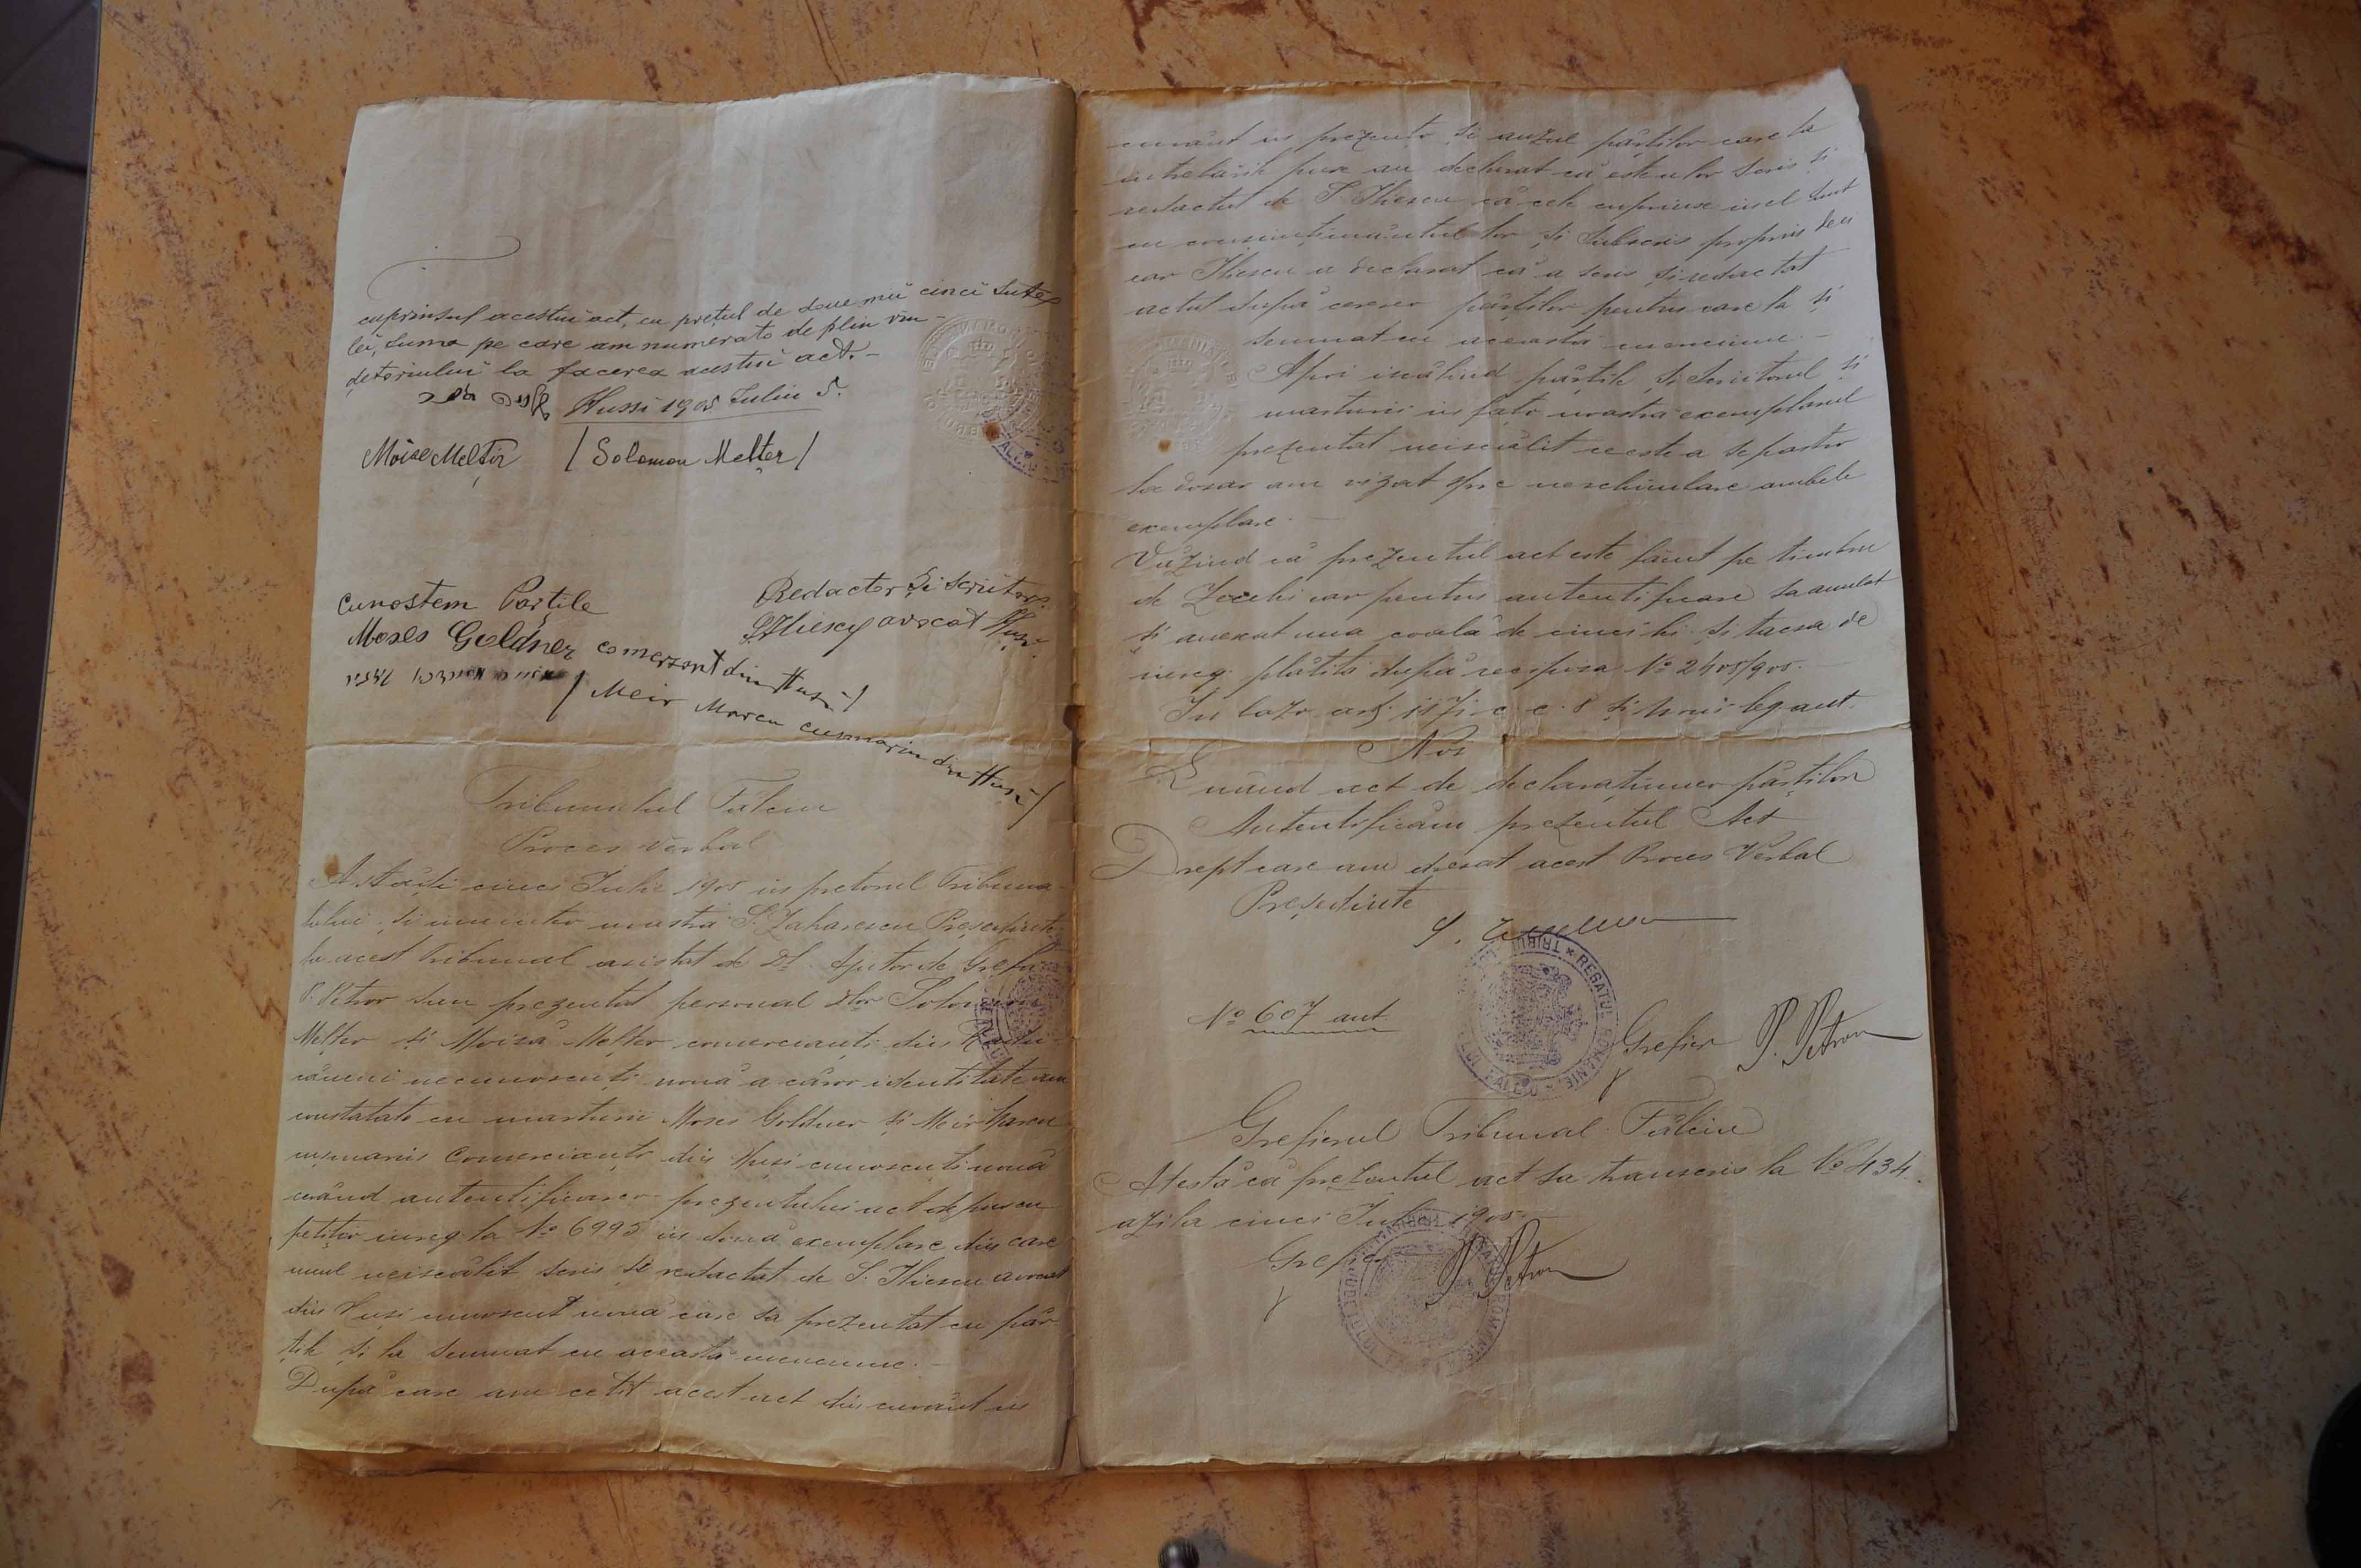 cuprinsul acestui act, cu prețul de doue mii cinci sute
lei, suma pe care am numerato de plin vin-
detoriului la facerea acestui act.-
Hussi 1905 Iuliu 5.
Moise Melțer / Solomon Melțer /
Cunostem Parțile
Redactor și scriitor
S Iliescu avocat Huși.
Moses Goldner comerzant din Huși /
/ Meir Marcu cusmariu din Huși /
Tribunalul Fălciu
Proces verbal
Astăḑi cinci Iulie 1905 in pretoriul Tribuna-
lului și inaintea noastră S. Zaharescu Președinte
la acest Tribunal asistat de Dl. Ajutor de Grefa
P. Petrov sau prezentat personal Dlor Solomon
Melțer și Moisă Melțer comercianți din
necunoscuți nouă a căror identitate am
constatato cu marturii Moses Goldner și Meir Marcu
cușmariu Comercianți din Huși cunoscuți nouă
cerând autentificarea prezentului act depus cu
petiția inreg la No 6995 in două exemplare din care
unul neiscălit scris și redactat de S. Iliescu avocat
din Huși cunoscut nouă care sa prezentat cu păr-
țile și la semnat cu această mențiune.-
După care am cetit acest act din cuvânt in
cuvânt in prezența și auzul părților care la
intrebările puse au declarat că este al lor scris și
redactat de S Iliescu că cele cuprinse in el sunt
cu consimțimântul lor și subscris propriu de ei
iar Iliescu a declarat că a scris și redactat
actul după cererea părților pentru care la și
semnat cu această mențiune.-
Apoi iscălind părțile și scriitorul și
marturii in fața noastră exemplarul
prezentat neiscălit acesta se pastra
la dosar am vizat spre neschimbare ambele
exemplare.-
Văzind că prezentul act este făcut pe timbru
de lei iar pentru autentificare sa anulat
și anexat una coală de cinci lei și tacsa de
inreg. plătită după recipisa No 2405/905.-
In baza art. 1171 c. c. 8 și leg aut.
Noi
Luând act de declarațiunea părților
Autentificăm prezentul Act
Drept care am dresat acest Proces Verbal
Președinte
TRIBUNALUL JUDETULUI FALCIU * REGATUL ROMANIEI *
No 607 aut.
Grefier P. Petrov
Grefierul Tribunal Fălciu
Atestă că prezentul act sa transcris la No 434.
azi la cinci Iulie 1905.-
Grefier P. Petrov